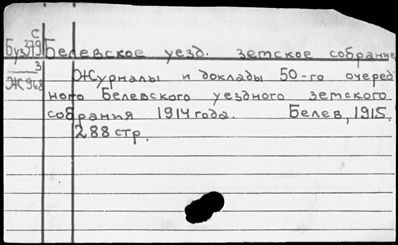 С
Буз379 Белевское уезд. земское собрание
3
Ж948 Журналы и доклады 50-го очеред
ного Белевского уездного земского
собрания 1914 года. Белев, 1915.
288 стр.